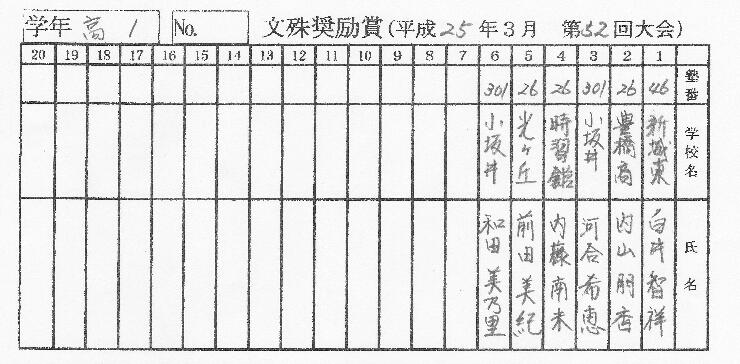 学年 高1 No. 文殊奨励賞(平成25年3月 第52回大会)
20 19 18 17 16 15 14 13 12 11 10 9 8 7 6 5 4 3 2 1
塾番 46 26 301 26 26 301
学校名 新城東 豊橋高 小坂井 時習館 光ヶ丘 小坂井
氏名 白井智祥 内山朋香 河合希恵 内藤南米 前田美紀 和田美乃里